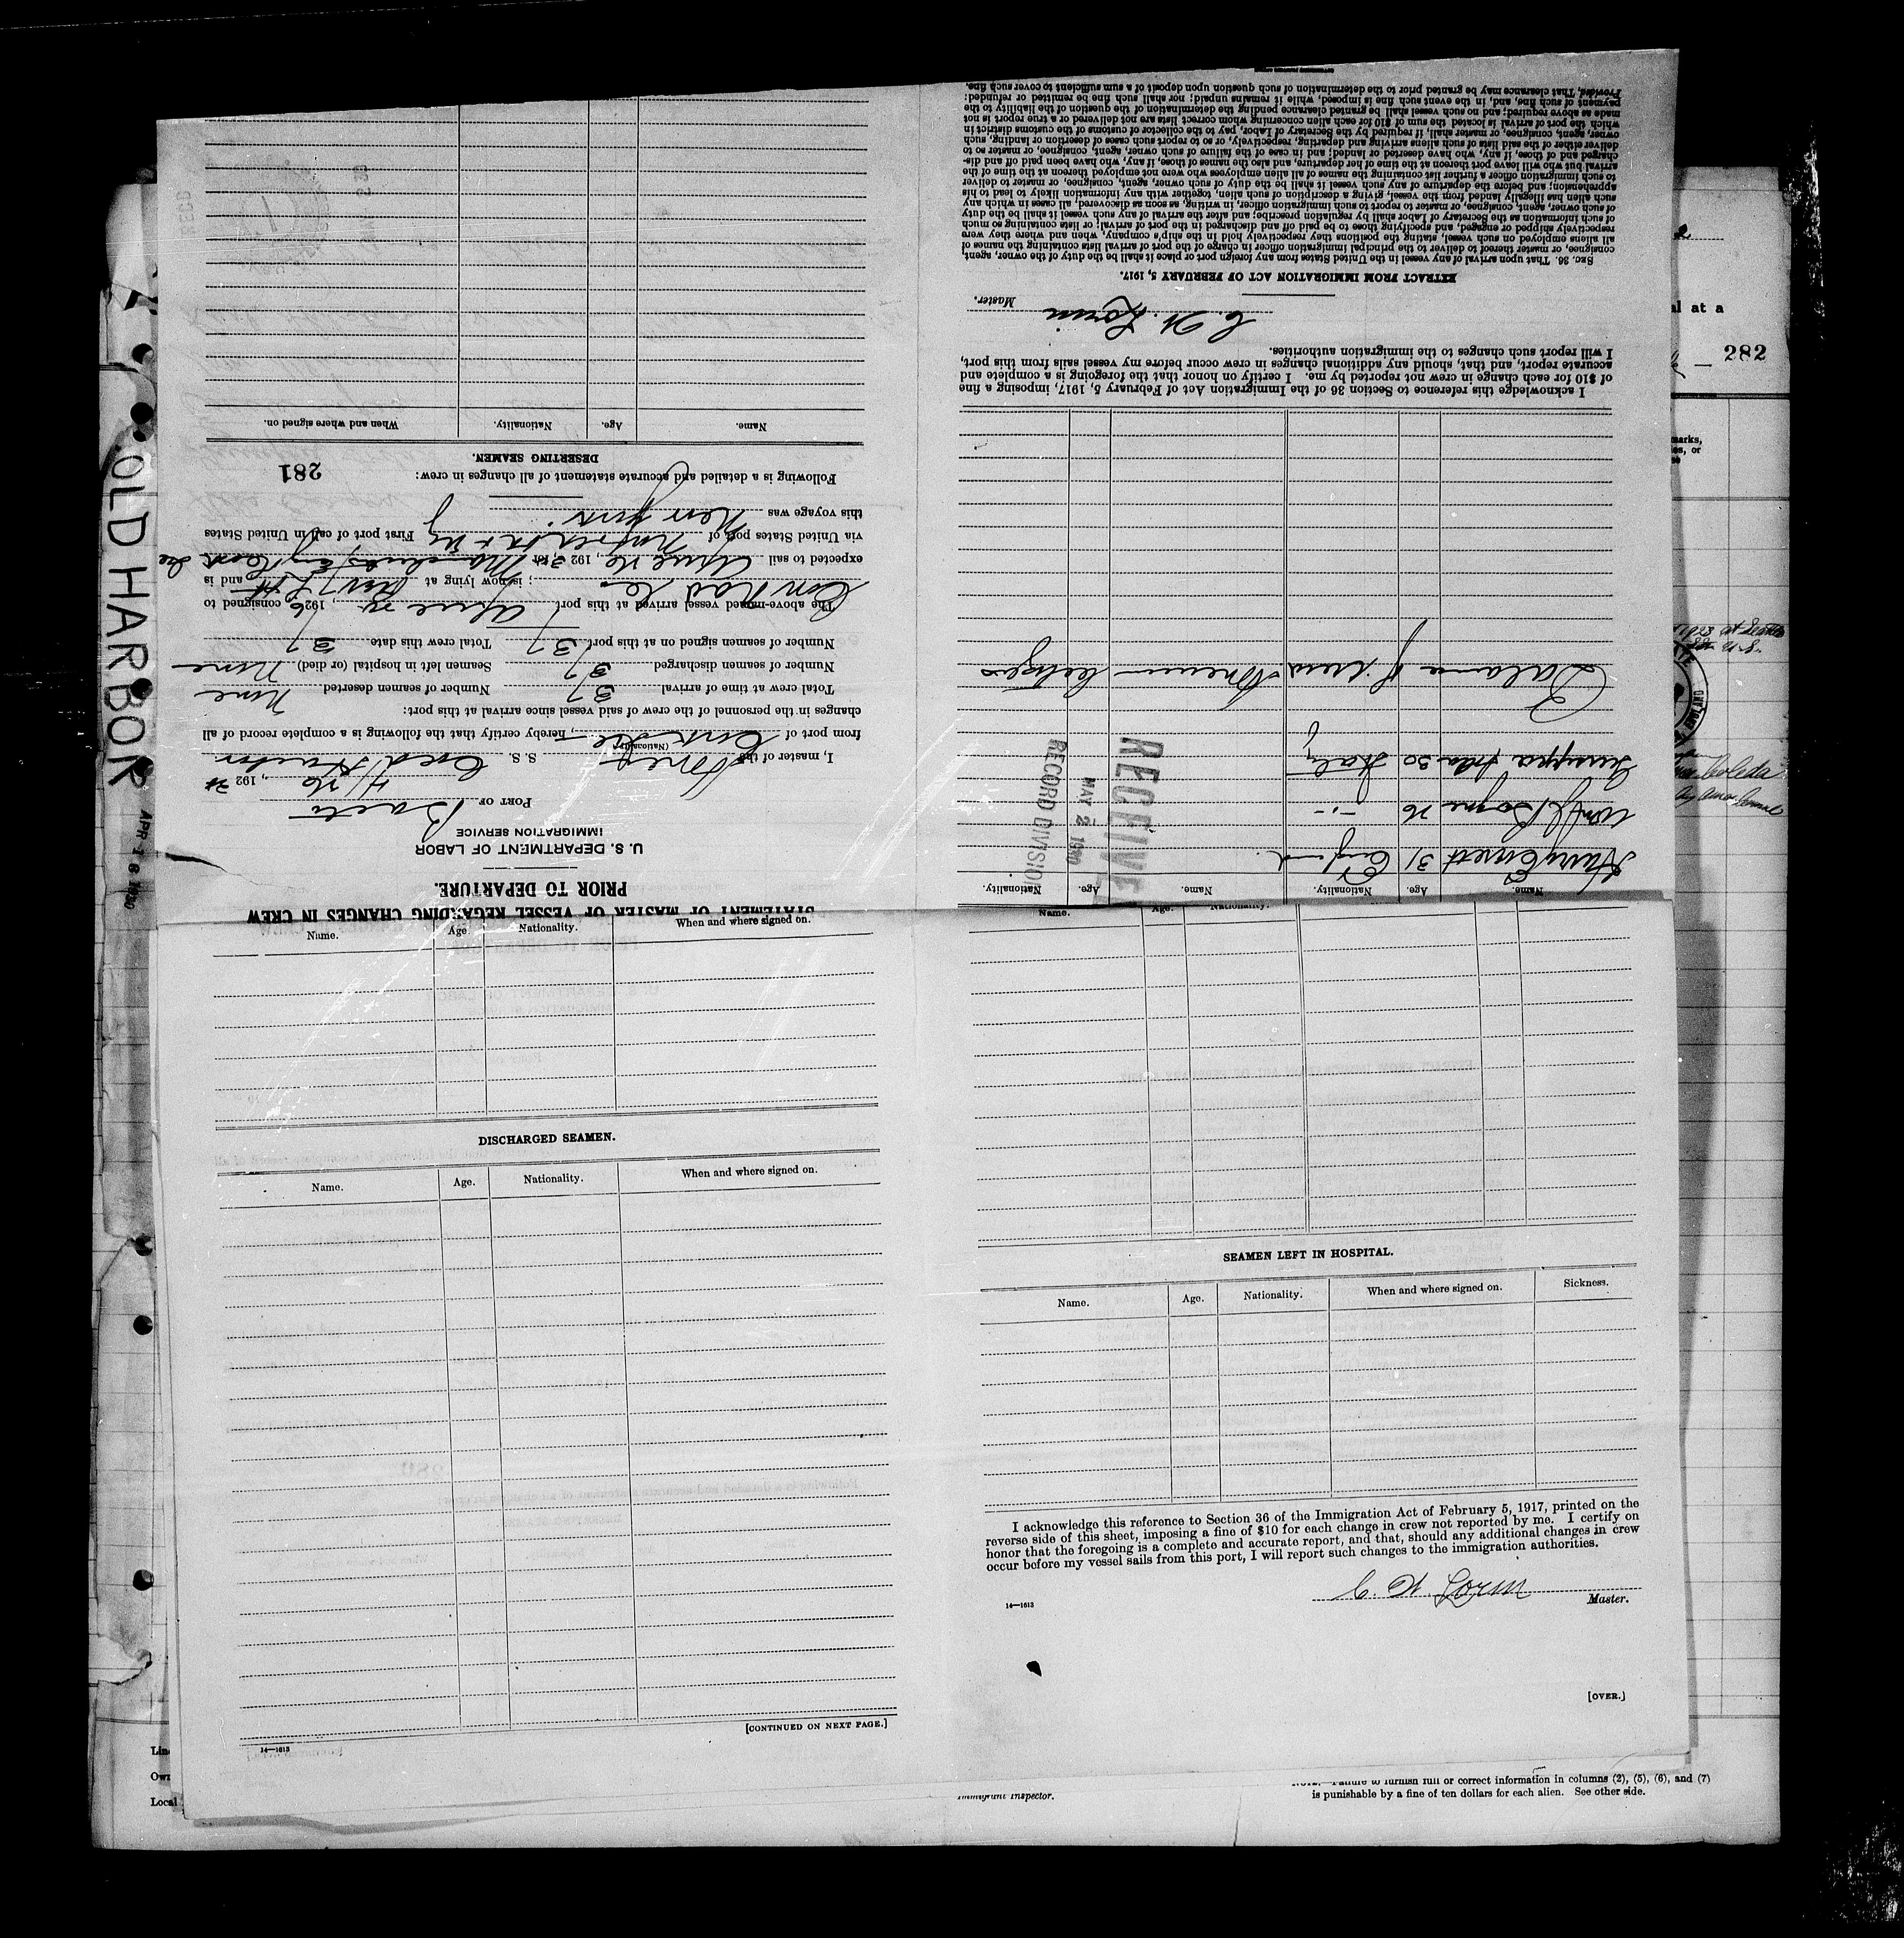 STATEMENT OF MASTER OF VESSEL REGARDING CHANGES IN CREW
PRIOR TO DEPARTURE.
U. S. DEPARTMENT OF LABOR
IMMIGRATION SERVICE
PORT OF
, 192
I, master of the S. S.
(Nationality)
from port of , hereby certify that the following is a complete record of all
changes in the personnel of the crew of said vessel since arrival at this port:
Total crew at time of arrival 37 Number of seamen deserted None
Number of seamen discharged 37 Seamen left in hospital (or died) None
Number of seamen signed on at this port 37 Total crew this date 37
The above-named vessel arrived at this port , 192 consigned to
; is now lying at and is
expected to sail , 192 , for
via United States port of First port of call in United States
this voyage was New York
Following is a detailed and accurate statement of all changes in crew:
281
DESERTING SEAMEN.
Name. Age. Nationality. When and where signed on.
Name. Age. Nationality. Name. Age. Nationality.
Harry 31 England
26 -"-
30 Italy
Balance of Crew
I acknowledge this reference to Section 36 of the Immigration Act of February 5, 1917, imposing a fine
of $10 for each change in crew not reported by me. I certify on honor that the foregoing is a complete and
accurate report, and that, should any additional changes in crew occur before my vessel sails from this port,
I will report such changes to the immigration authorities.
C. W.
Master.
EXTRACT FROM IMMIGRATION ACT OF FEBRUARY 5, 1917.
SEC. 36. That upon arrival of any vessel in the United States from any foreign port or place it shall be the duty of the owner, agent,
consignee, or master thereof to deliver to the principal immigration officer in charge of the port of arrival lists containing the names of
all aliens employed on such vessel, stating the positions they respectively hold in the ship's company, when and where they were
respectively shipped or engaged, and specifying those to be paid off and discharged in the port of arrival; or lists containing so much
of such information as the Secretary of Labor shall by regulation prescribe; and after the arrival of any such vessel it shall be the duty
of such owner, agent, consignee, or master to report to such immigration officer, in writing, as soon as discovered, all cases in which any
such alien has illegally landed from the vessel, giving a description of such alien, together with any information likely to lead to his
apprehension; and before the departure of any such vessel it shall be the duty of such owner, agent, consignee, or master to deliver
to such immigration officer a further list containing the names of all alien employees who were not employed thereon at the time of the
arrival but who will leave port thereon at the time of her departure, and also the names of those, if any, who have been paid off and dis-
charged and of those, if any, who have deserted or landed; and in case of the failure of such owner, agent, consignee, or master to
deliver either of the said lists of such aliens arriving and departing, respectively, or so to report such cases of desertion or landing, such
owner, agent, consignee, or master shall, if required by the Secretary of Labor, pay to the collector of customs of the customs district in
which the port of arrival is located the sum of $10 for each alien concerning whom correct lists are not delivered or a true report is not
made as above required; and no such vessel shall be granted clearance pending the determination of the question of the liability to the
payment of such fine, and, in the event such fine is imposed, while it remains unpaid; nor shall such fine be remitted or refunded:
Provided, That clearance may be granted prior to the determination of such question upon deposit of a sum sufficient to cover such fine.
RECEIVE
MAY 2 1930
RECORD DIVISION
OLD HARBOR
APR 16 1930
al at a
282
marks,
es, or
Name. Age. Nationality. When and where signed on.
DISCHARGED SEAMEN.
Name. Age. Nationality. When and where signed on.
[CONTINUED ON NEXT PAGE.]
14—1613
Name. Age. Nationality.
SEAMEN LEFT IN HOSPITAL.
Name. Age. Nationality. When and where signed on. Sickness.
I acknowledge this reference to Section 36 of the Immigration Act of February 5, 1917, printed on the
reverse side of this sheet, imposing a fine of $10 for each change in crew not reported by me. I certify on
honor that the foregoing is a complete and accurate report, and that, should any additional changes in crew
occur before my vessel sails from this port, I will report such changes to the immigration authorities.
C. W.
Master.
14—1613
[OVER.]
Local
Immigrant Inspector.
NOTE.—Failure to furnish full or correct information in columns (2), (5), (6), and (7)
is punishable by a fine of ten dollars for each alien. See other side.